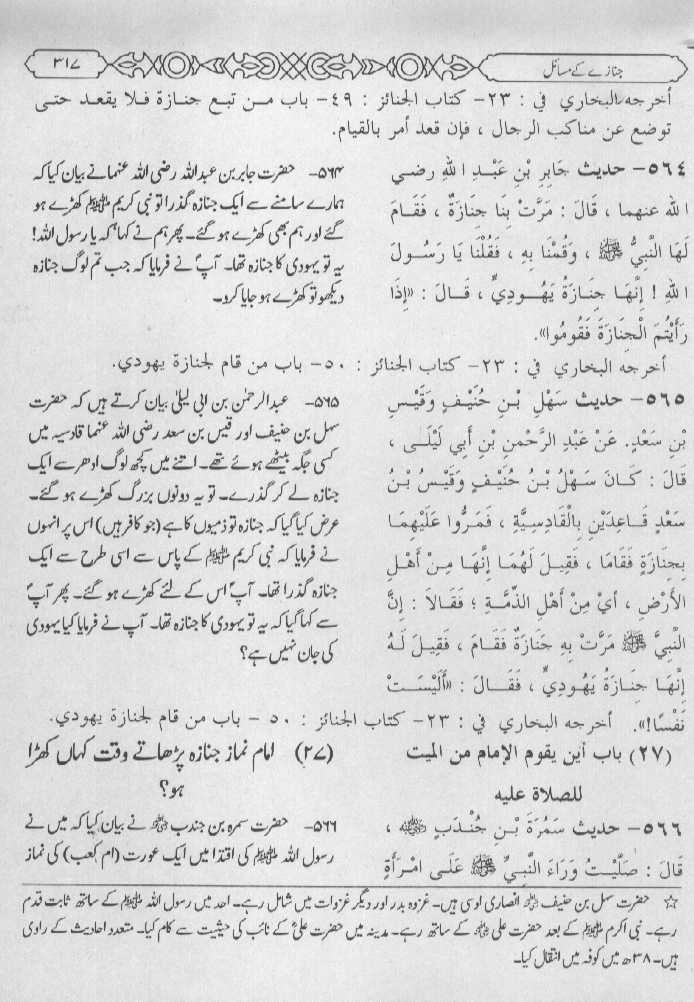 جنازے کے مسائل
۳۱۷
أخرجه البخاري في : ٢٣- كتاب الجنائز : ٤٩- باب من تبع جنازة فلا يقعد حتى
توضع عن مناكب الرجال ، فإن قعد أمر بالقيام.
٥٦٤- حديث جَابِرِ بْنِ عَبْدِ اللهِ رضي
الله عنهما ، قَالَ : مَرَّتْ بِنَا جَنَازَةٌ ، فَقَامَ
لَهَا النَّبِيُّ ﷺ ، وَقُمْنَا بِهِ ، فَقُلْنَا يَا رَسُولَ
اللهِ ! إِنَّهَا جِنَازَةُ يَهُودِيٍّ ، قَالَ : «إِذَا
رَأَيْتُمَ الْجِنَازَةَ فَقُومُوا».
۵۶۴- حضرت جابر بن عبداللہ رضی اللہ عنہما نے بیان کیا کہ
ہمارے سامنے سے ایک جنازہ گذرا تو نبی کریم ﷺ کھڑے ہو
گئے اور ہم بھی کھڑے ہو گئے۔ پھر ہم نے کہا' کہ یا رسول اللہ!
یہ تو یہودی کا جنازہ تھا۔ آپؐ نے فرمایا کہ جب تم لوگ جنازہ
دیکھو تو کھڑے ہو جایا کرو۔
أخرجه البخاري في : ٢٣- كتاب الجنائز : ٥٠- باب من قام لجنازة يهودي.
٥٦٥- حديث سَهْلِ بْنِ حُنَيْفٍ وَقَيْسِ
بْنِ سَعْدٍ. عَنْ عَبْدِ الرَّحْمنِ بْنِ أَبِي لَيْلَى ،
قَالَ : كَانَ سَهْلُ بْنُ حُنَيْفٍ وَقَيْسُ بْنُ
سَعْدٍ قَاعِدَيْنِ بِالْقَادِسِيَّةِ ، فَمَرُّوا عَلَيْهِمَا
بِجِنَازَةٍ فَقَامَا ، فَقِيلَ لَهُمَا إِنَّهَا مِنْ أَهْلِ
الأَرْضِ ، أَيْ مِنْ أَهْلِ الذِّمَّةِ ؛ فَقَالاَ : إِنَّ
النَّبِيَّ ﷺ مَرَّتْ بِهِ جَنَازَةٌ فَقَامَ ، فَقِيلَ لَهُ
إِنَّهَا جَنَازَةُ يَهُودِيٍّ ، فَقَالَ : «أَلَيْسَتْ
نَفْسًا!». أخرجه البخاري في : ٢٣- كتاب الجنائز : ٥٠ - باب من قام لجنازة يهودي.
۵۶۵- عبدالرحمٰن بن ابی لیلیٰ بیان کرتے ہیں کہ حضرت
سہل بن حنیف اور قیس بن سعد رضی اللہ عنہما قادسیہ میں
کسی جگہ بیٹھے ہوئے تھے۔ اتنے میں کچھ لوگ ادھر سے ایک
جنازہ لے کر گذرے۔ تو یہ دونوں بزرگ کھڑے ہو گئے۔
عرض کیا گیا کہ جنازہ تو ذمیوں کا ہے (جو کافر ہیں) اس پر انہوں
نے فرمایا کہ نبی کریم ﷺ کے پاس سے اسی طرح سے ایک
جنازہ گذرا تھا۔ آپؐ اس کے لئے کھڑے ہو گئے۔ پھر آپؐ
سے کہا گیا کہ یہ تو یہودی کا جنازہ تھا۔ آپ نے فرمایا کیا یہودی
کی جان نہیں ہے؟
(٢٧) باب أين يقوم الإمام من الميت
للصلاة عليه
(۲۷) امام نماز جنازہ پڑھاتے وقت کہاں کھڑا
ہو؟
٥٦٦- حديث سَمُرَةَ بْنِ جُنْدَبٍ ﷺ ،
قَالَ : صَلَّيْتُ وَرَاءَ النَّبِيِّ ﷺ عَلَى امْرَأَةٍ
۵۶۶- حضرت سمرہ بن جندب نے بیان کیا کہ میں نے
رسول اللہ ﷺ کی اقتدا میں ایک عورت (ام کعب) کی نماز
☆ حضرت سہل بن حنیف انصاری اوسی ہیں۔ غزوہ بدر اور دیگر غزوات میں شامل رہے۔ احد میں رسول اللہ ﷺ کے ساتھ ثابت قدم
رہے۔ نبی اکرم ﷺ کے بعد حضرت علی کے ساتھ رہے۔ مدینہ میں حضرت علیؓ کے نائب کی حیثیت سے کام کیا۔ متعدد احادیث کے راوی
ہیں۔ ۳۸ھ میں کوفہ میں انتقال کیا۔